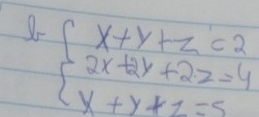 b { x+y+z=2
2x+2y+2z=4
x+y+z=5